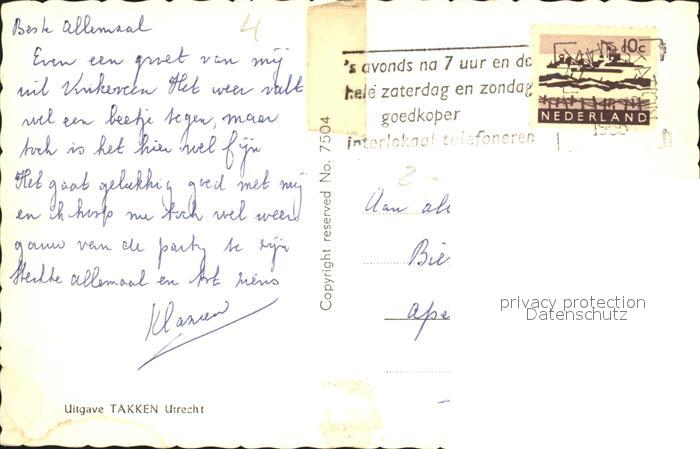 Beste allemaal
Even een groet van mij
uit Vinkeveen Het weer valt
wel een beetje tegen, maar
toch is het hier wel fijn
Het gaat gelukkig goed met mij
en ik hoop nu toch wel weer
gauw van de party te zijn
Sterkte allemaal en tot ziens
4
's avonds na 7 uur en de
hele zaterdag en zondag
goedkoper
interlokaal telefoneren
10c
NEDERLAND
Copyright reserved No. 7504
2-
Aan al
Bie
ape
privacy protection
Datenschutz
Uitgave TAKKEN Utrecht